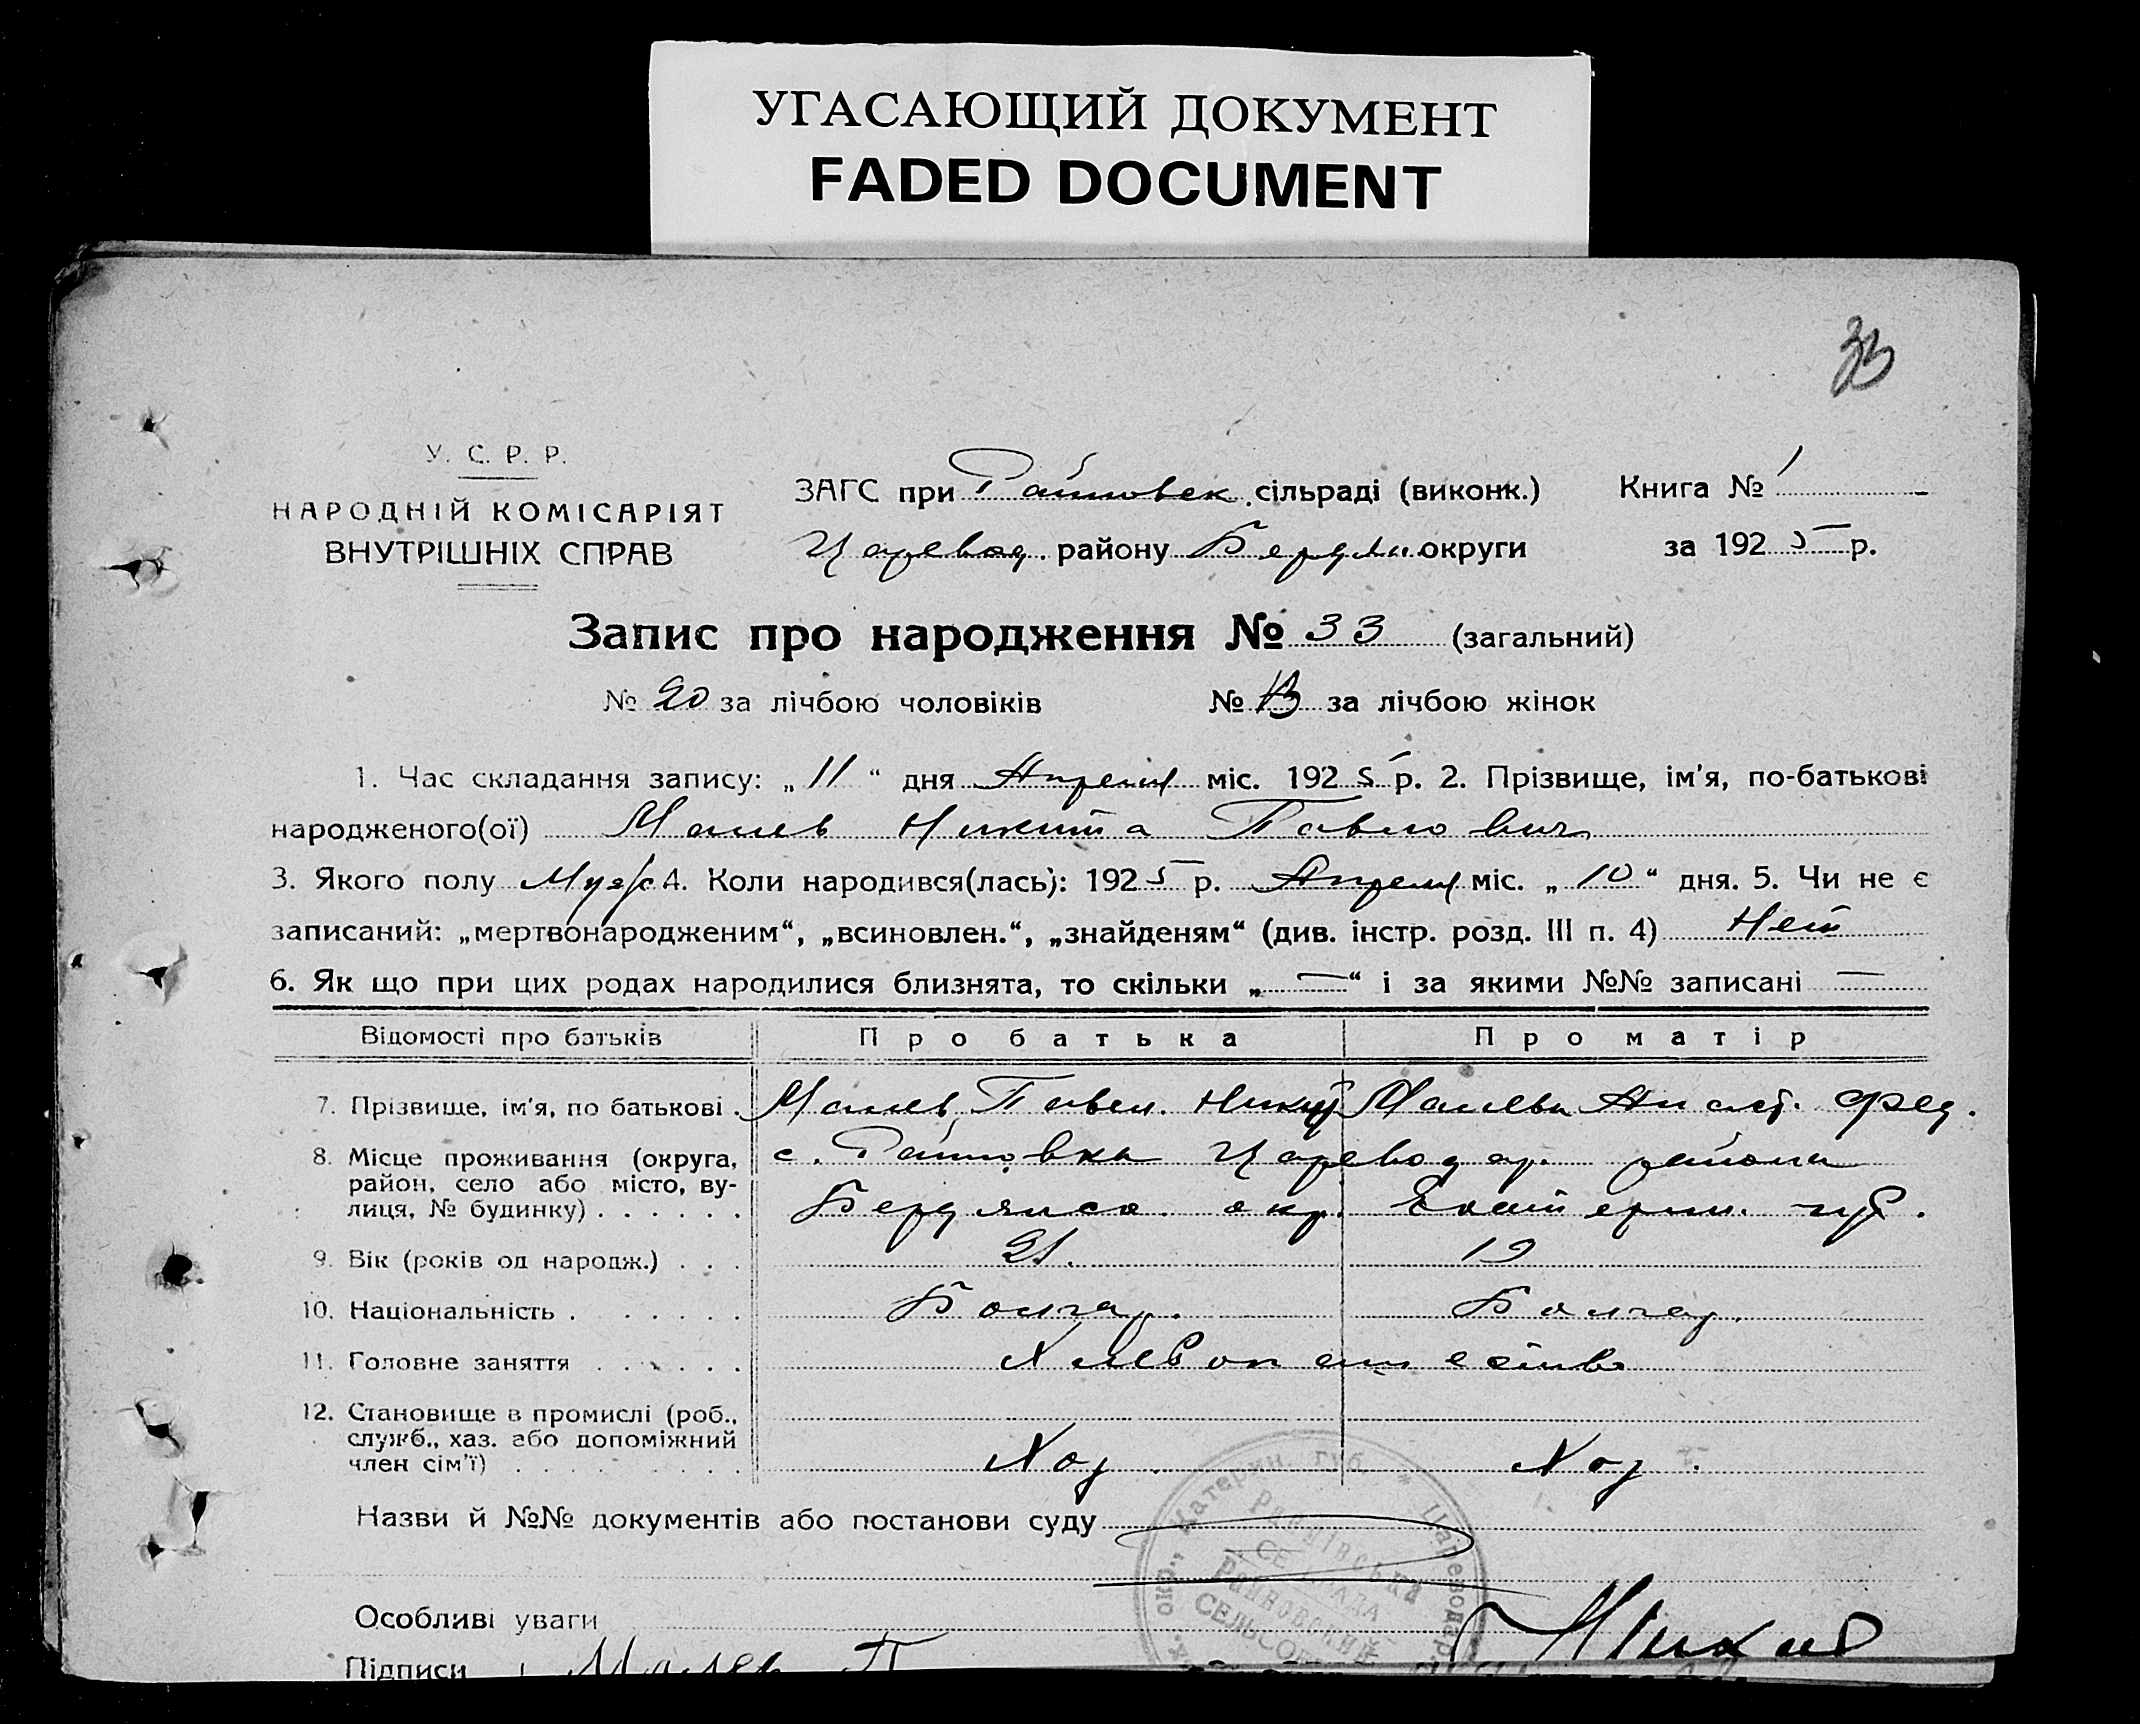 УГАСАЮЩИЙ ДОКУМЕНТ
FADED DOCUMENT
33
У. С. Р. Р.
НАРОДНІЙ КОМІСАРІЯТ
ВНУТРІШНІХ СПРАВ
ЗАГС при Райновск. сільраді (виконк.)
Книга № 1
Царевод. району Бердян. округи
за 1925 р.
Запис про народження № 33 (загальний)
№ 20 за лічбою чоловіків № 13 за лічбою жінок
1. Час складання запису: „11“ дня Апреля міс. 1925 р. 2. Прізвище, ім'я, по-батькові
народженого(ої) Малев Никита Павлович
3. Якого полу Мужс 4. Коли народився(лась): 1925 р. Апреля міс. „10“ дня. 5. Чи не є
записаний: „мертвонародженим“, „всиновлен.“, „знайденям“ (див. інстр. розд. III п. 4) Нет
6. Як що при цих родах народилися близнята, то скільки „—“ і за якими №№ записані —
Відомості про батьків Про батька Про матір
7. Прізвище, ім'я, по батькові . Малев Павел. Никит Малева Анаст. Фед.
8. Місце проживання (округа,
район, село або місто, ву-
лиця, № будинку) . . . . . .
с. Райновка Цареводар. района
Бердянск. окр. Екатерин. губ.
9. Вік (років од народж.) . . . 21. 19
10. Національність . . . . . . . Болгар. Болгар.
11. Головне заняття . . . . . . Хлебопашество
12. Становище в промислі (роб.,
служб., хаз. або допоміжний
член сім'ї) . . . . . . . . .
Хоз. Хоз.
Назви й №№ документів або постанови суду
Особливі уваги
Підписи Малев П
Катерин. губ. * Цареводар
окр.,
Райнівська
СЕЛЬРАДА
Райновский
СЕЛЬСО